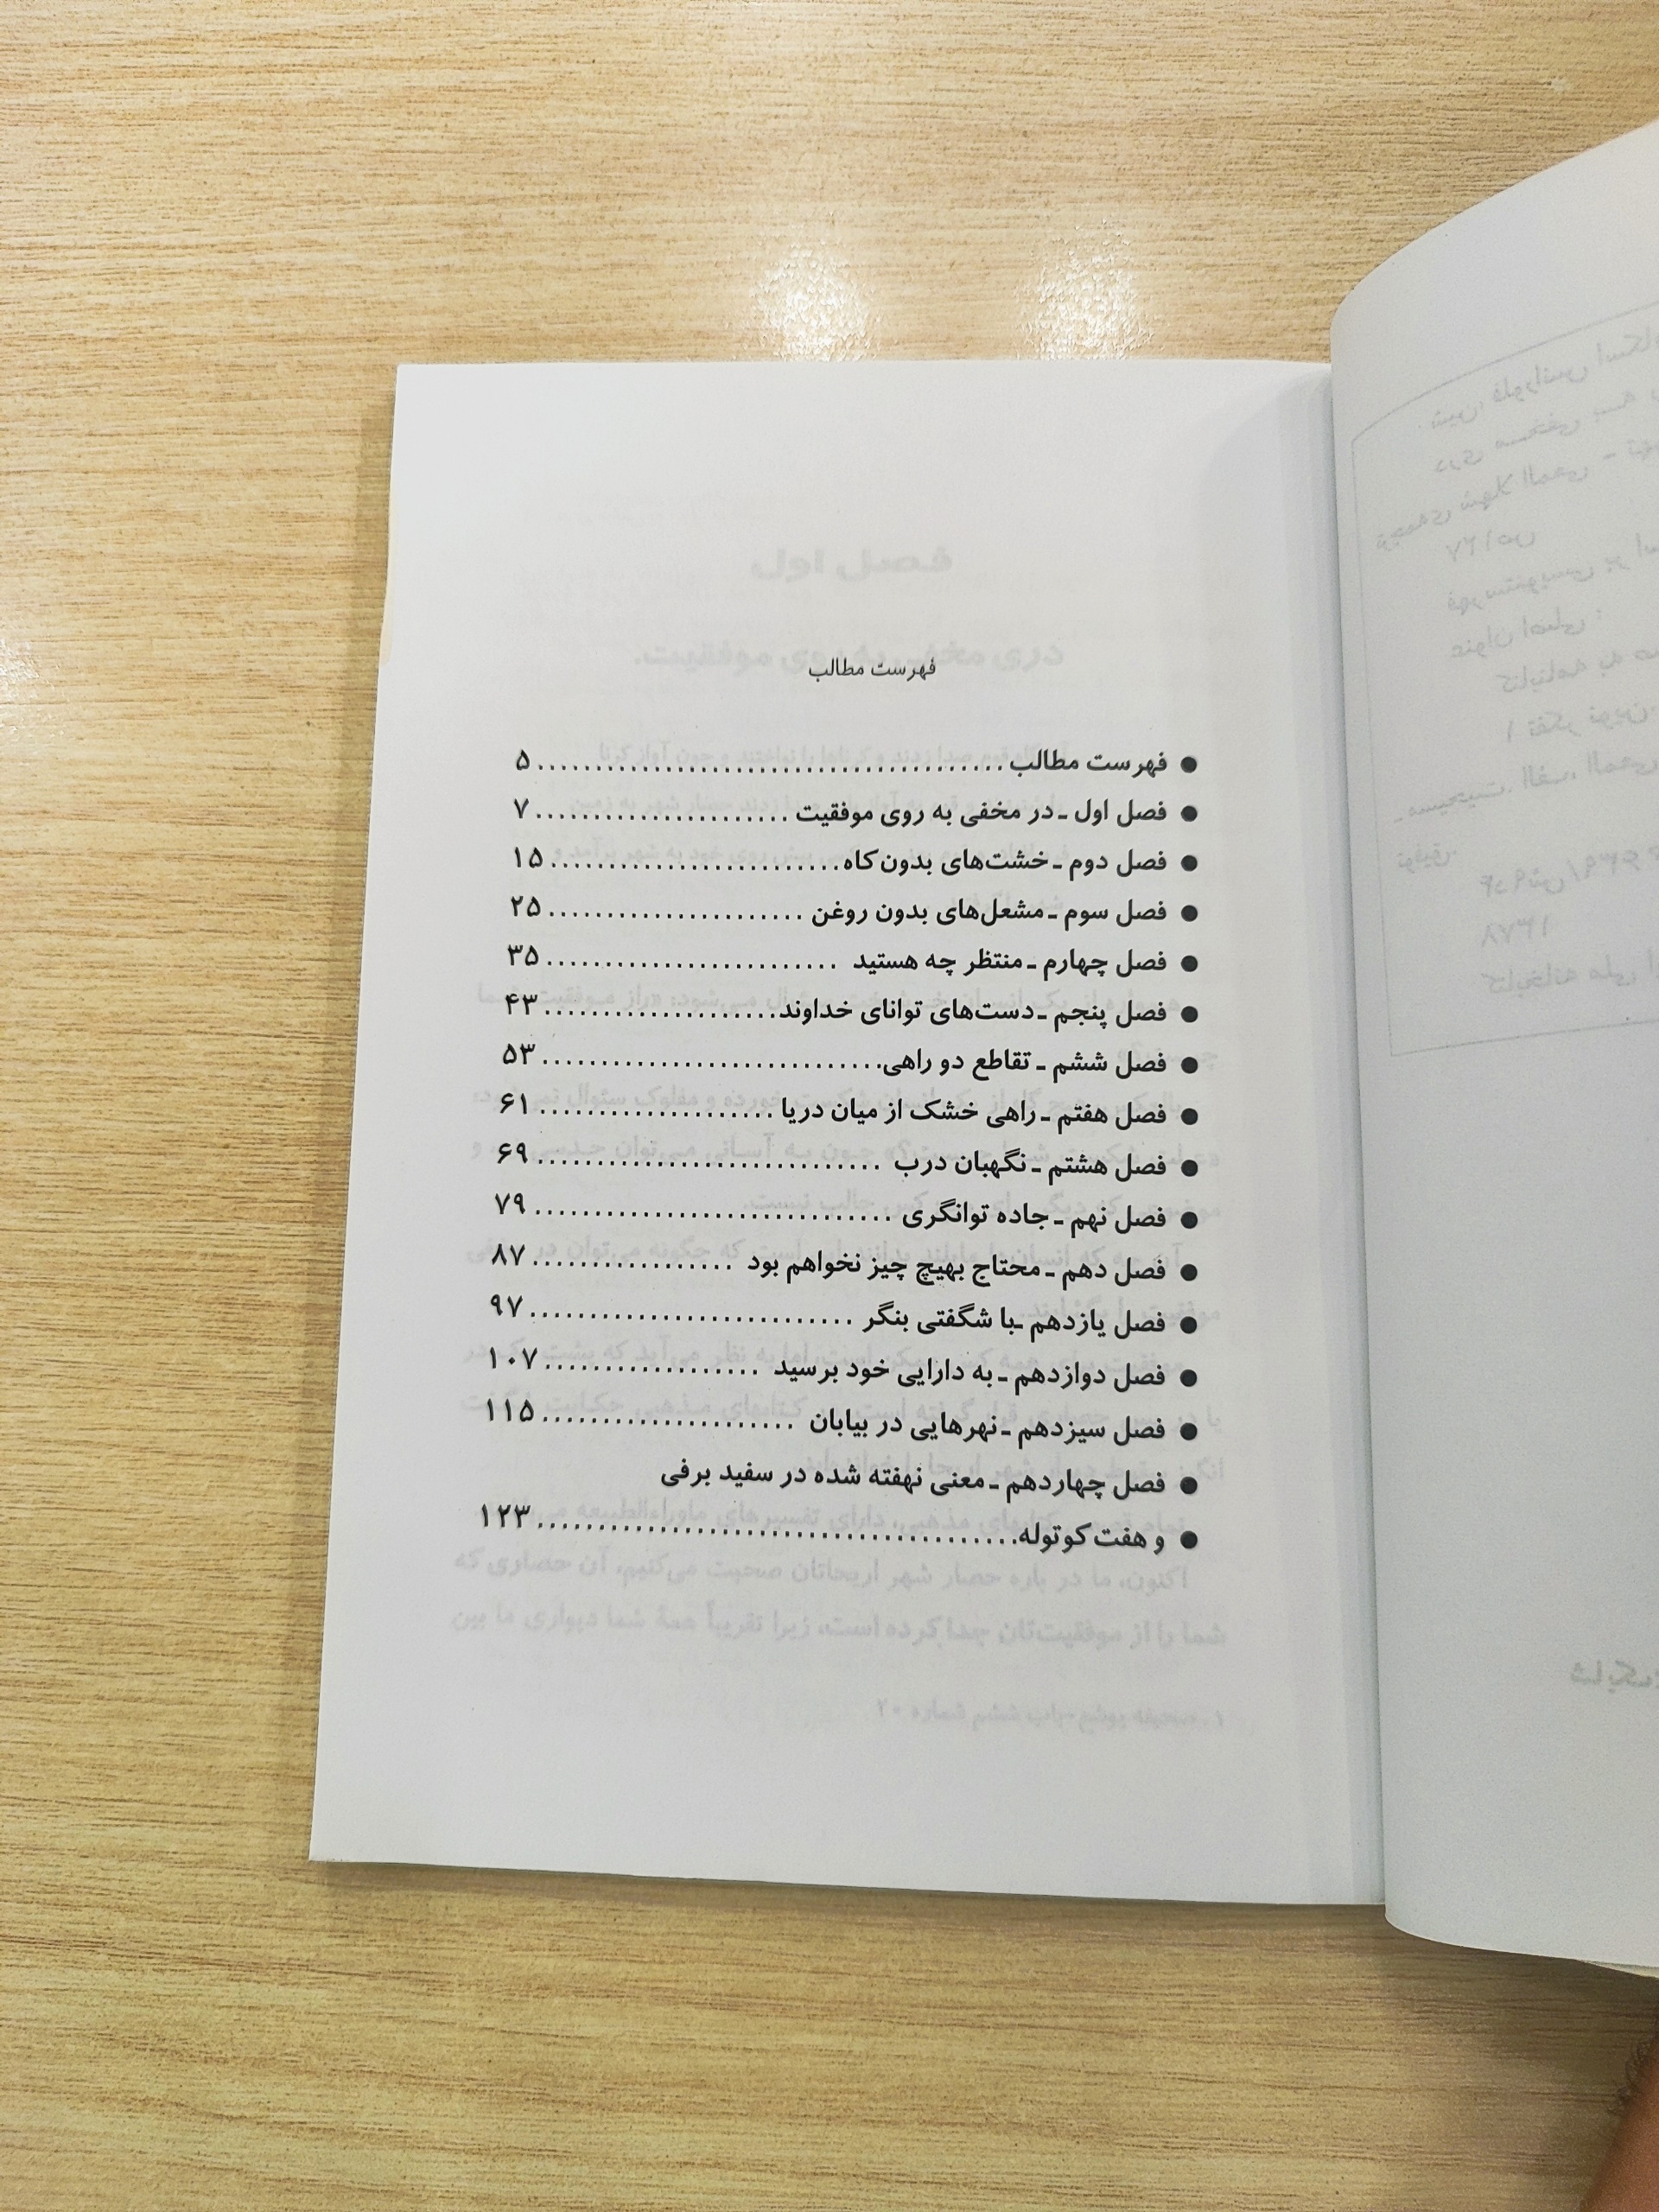 فهرست مطالب
● فهرست مطالب........................................ ۵
● فصل اول ـ در مخفی به روی موفقیت ...................... ۷
● فصل دوم ـ خشت‌های بدون کاه......................... ۱۵
● فصل سوم ـ مشعل‌های بدون روغن ...................... ۲۵
● فصل چهارم ـ منتظر چه هستید ......................... ۳۵
● فصل پنجم ـ دست‌های توانای خداوند.................... ۴۳
● فصل ششم ـ تقاطع دو راهی............................. ۵۳
● فصل هفتم ـ راهی خشک از میان دریا .................... ۶۱
● فصل هشتم ـ نگهبان درب ............................. ۶۹
● فصل نهم ـ جاده توانگری .............................. ۷۹
● فصل دهم ـ محتاج بهیچ چیز نخواهم بود ................. ۸۷
● فصل یازدهم ـ با شگفتی بنگر ........................... ۹۷
● فصل دوازدهم ـ به دارایی خود برسید .................. ۱۰۷
● فصل سیزدهم ـ نهرهایی در بیابان ...................... ۱۱۵
● فصل چهاردهم ـ معنی نهفته شده در سفید برفی
● و هفت کوتوله......................................... ۱۲۳